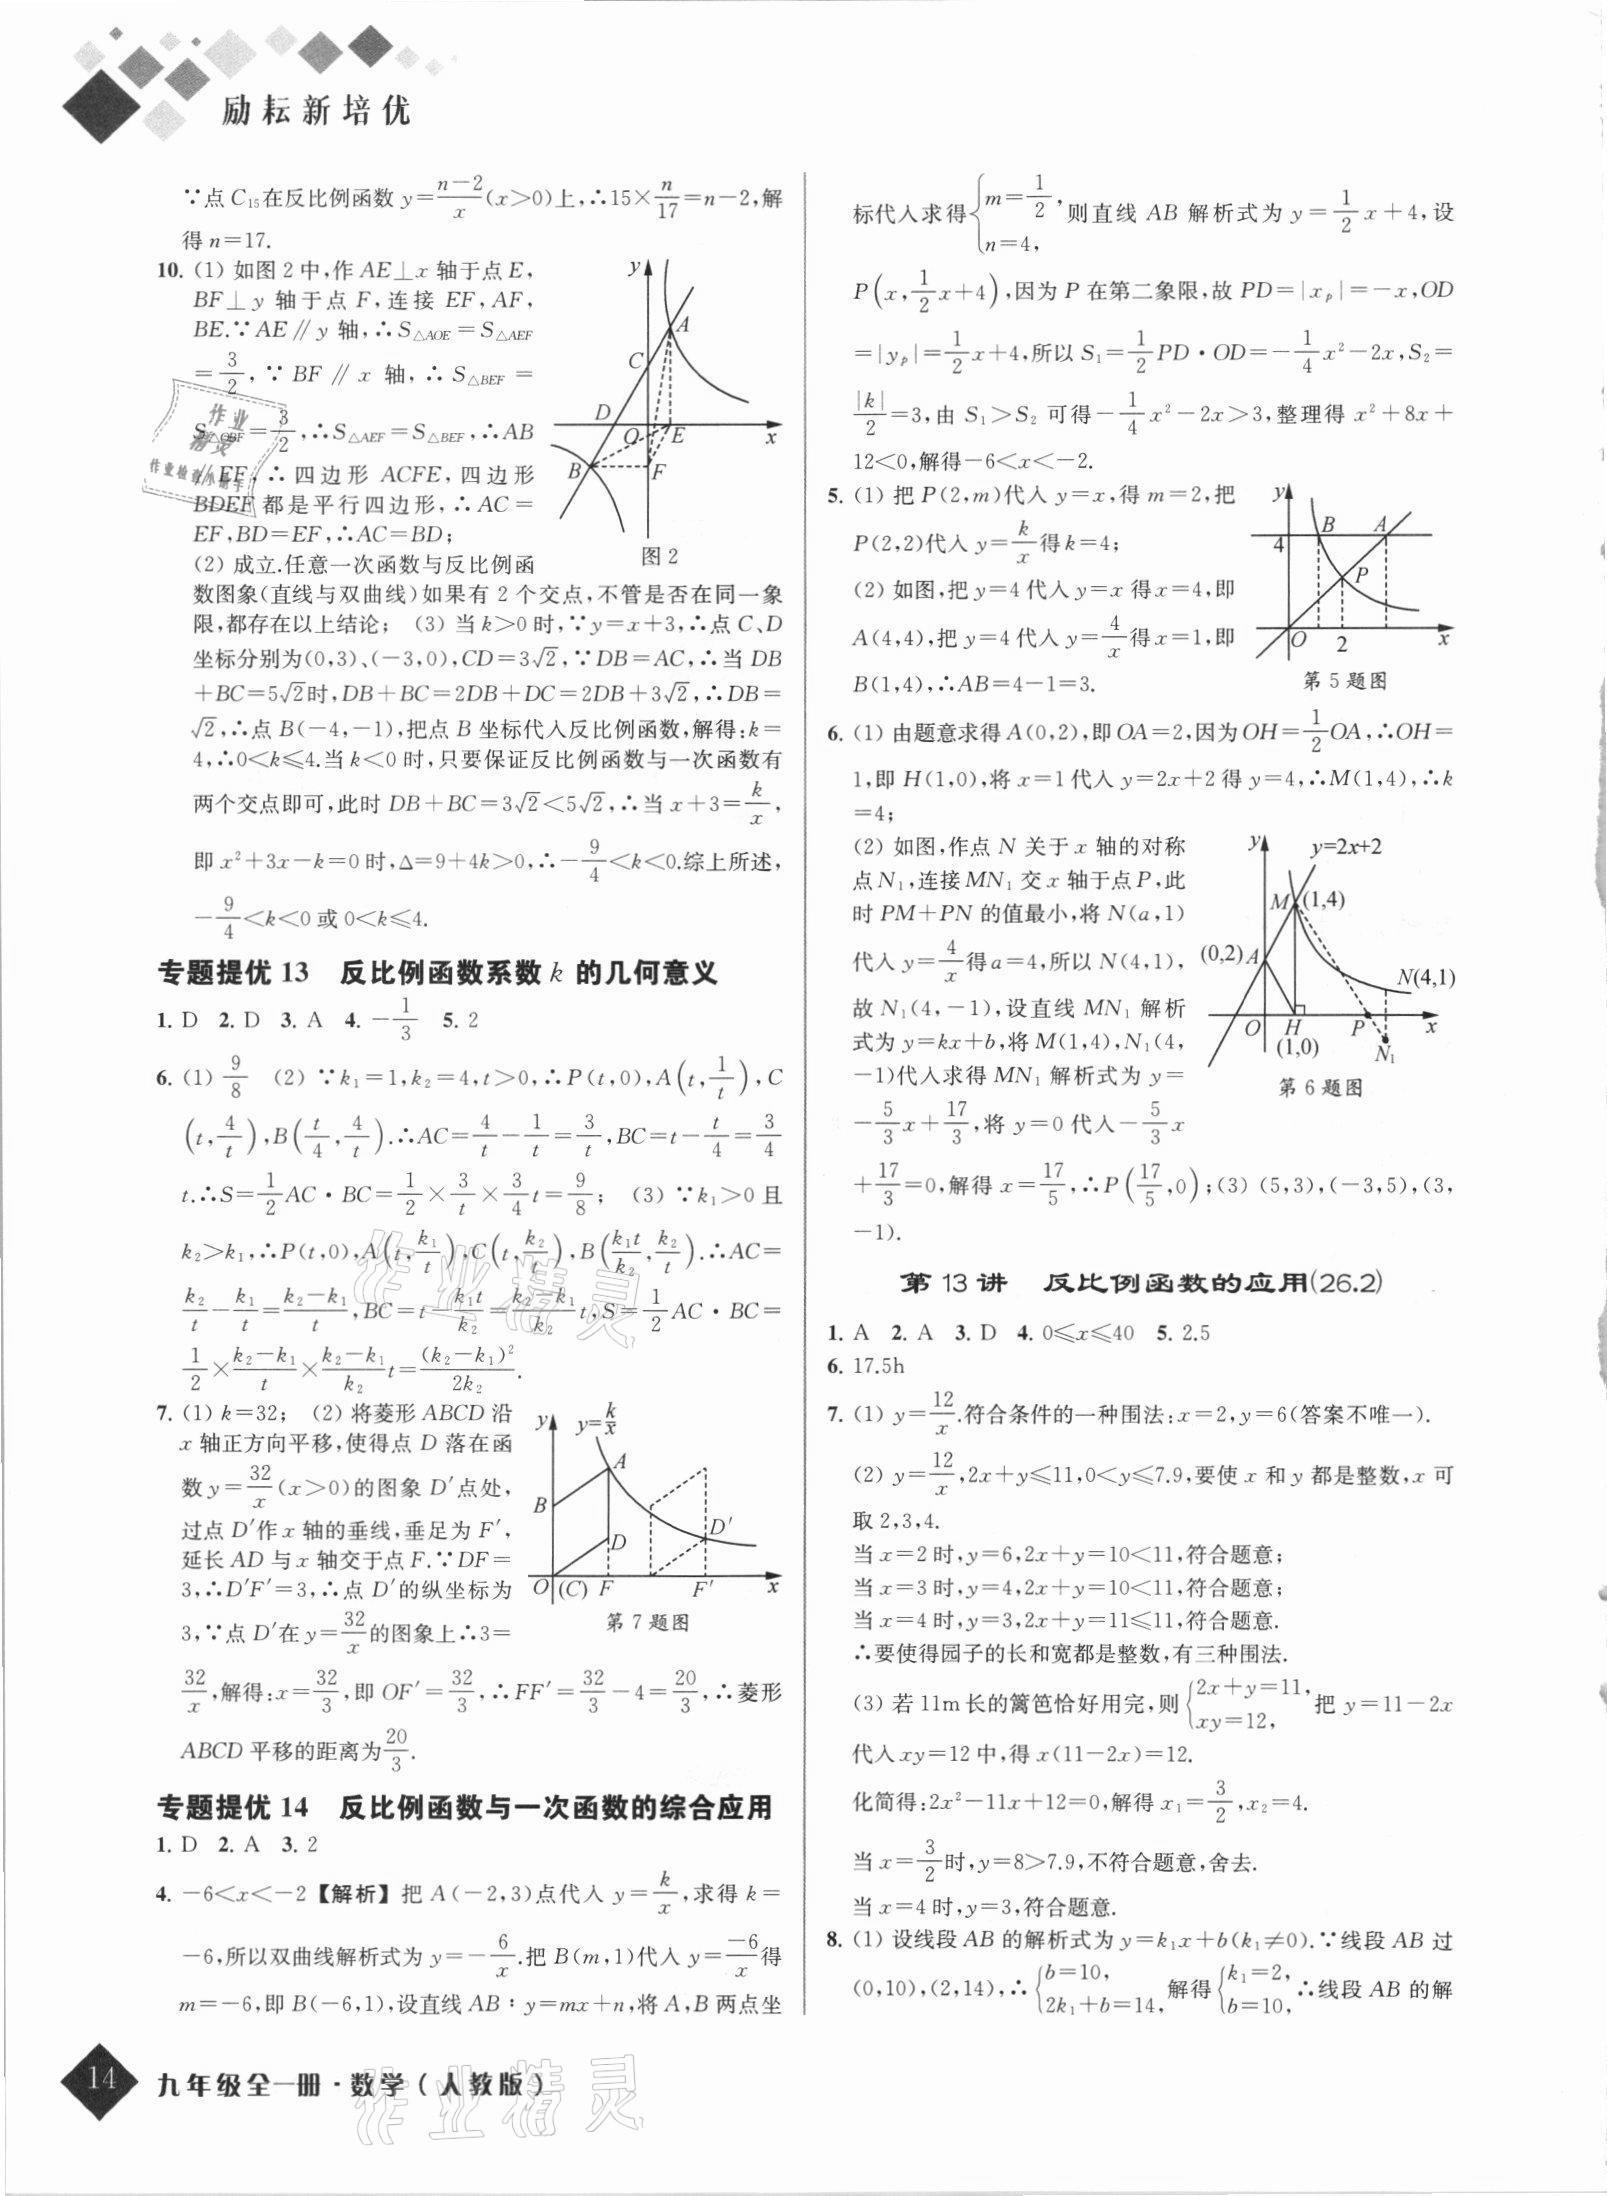 励耘新培优
∵点 C₁₅在反比例函数 y=(n-2)/x(x>0)上,∴15×n/17=n-2,解
得 n=17.
10. (1) 如图2中,作 AE⊥x 轴于点 E,
BF⊥y 轴于点 F,连接 EF,AF,
BE.∵AE∥y 轴,∴S△AOE=S△AEF
=3/2,∵BF∥x 轴,∴S△BEF=
S△OBF=3/2,∴S△AEF=S△BEF,∴AB
∥EF,∴四边形 ACFE,四边形
BDEF都是平行四边形,∴AC=
EF,BD=EF,∴AC=BD;
(2) 成立.任意一次函数与反比例函
数图象(直线与双曲线)如果有2个交点,不管是否在同一象
限,都存在以上结论; (3) 当k>0时,∵y=x+3,∴点C、D
坐标分别为(0,3)、(-3,0),CD=3√2,∵DB=AC,∴当 DB
+BC=5√2时,DB+BC=2DB+DC=2DB+3√2,∴DB=
√2,∴点 B(-4,-1),把点 B 坐标代入反比例函数,解得:k=
4,∴0<k≤4.当k<0时,只要保证反比例函数与一次函数有
两个交点即可,此时 DB+BC=3√2<5√2,∴当 x+3=k/x,
即 x²+3x-k=0时,Δ=9+4k>0,∴-9/4<k<0.综上所述,
-9/4<k<0或0<k≤4.
y
A
C
D
O
E
x
B
F
图2
专题提优13 反比例函数系数 k 的几何意义
1. D 2. D 3. A 4. -1/3 5. 2
6. (1) 9/8 (2) ∵k₁=1,k₂=4,t>0,∴P(t,0),A(t,1/t),C
(t,4/t),B(t/4,4/t).∴AC=4/t-1/t=3/t,BC=t-t/4=3/4
t.∴S=1/2AC·BC=1/2×3/t×3/4t=9/8; (3) ∵k₁>0且
k₂>k₁,∴P(t,0),A(t,k₁/t),C(t,k₂/t),B(k₁t/k₂,k₂/t).∴AC=
k₂/t-k₁/t=(k₂-k₁)/t,BC=t-k₁t/k₂=(k₂-k₁)/k₂t,S=1/2AC·BC=
1/2×(k₂-k₁)/t×(k₂-k₁)/k₂t=(k₂-k₁)²/2k₂.
7. (1) k=32; (2) 将菱形 ABCD 沿
x 轴正方向平移,使得点 D 落在函
数 y=32/x(x>0)的图象 D′点处,
过点 D′作x 轴的垂线,垂足为 F′,
延长 AD 与x 轴交于点F.∵DF=
3,∴D′F′=3,∴点 D′的纵坐标为
3,∵点 D′在 y=32/x的图象上∴3=
32/x,解得:x=32/3,即 OF′=32/3,∴FF′=32/3-4=20/3,∴菱形
ABCD 平移的距离为20/3.
y
y=k/x
A
B
D
D′
O
(C)
F
F′
x
第7题图
专题提优14 反比例函数与一次函数的综合应用
1. D 2. A 3. 2
4. -6<x<-2【解析】把 A(-2,3)点代入 y=k/x,求得 k=
-6,所以双曲线解析式为 y=-6/x.把 B(m,1)代入 y=-6/x得
m=-6,即 B(-6,1),设直线 AB:y=mx+n,将 A,B 两点坐
标代入求得{m=1/2, n=4,则直线 AB 解析式为 y=1/2x+4,设
P(x,1/2x+4),因为 P 在第二象限,故 PD=|xₚ|=-x,OD
=|yₚ|=1/2x+4,所以 S₁=1/2PD·OD=-1/4x²-2x,S₂=
|k|/2=3,由 S₁>S₂ 可得-1/4x²-2x>3,整理得 x²+8x+
12<0,解得-6<x<-2.
5. (1) 把 P(2,m)代入 y=x,得 m=2,把
P(2,2)代入 y=k/x得k=4;
(2) 如图,把y=4代入y=x 得x=4,即
A(4,4),把 y=4代入 y=4/x得 x=1,即
B(1,4),∴AB=4-1=3.
y
B
A
4
P
O
2
x
第5题图
6. (1) 由题意求得 A(0,2),即OA=2,因为OH=1/2OA,∴OH=
1,即 H(1,0),将 x=1代入 y=2x+2得 y=4,∴M(1,4),∴k
=4;
(2) 如图,作点 N 关于x 轴的对称
点N₁,连接MN₁ 交x 轴于点P,此
时 PM+PN 的值最小,将 N(a,1)
代入 y=4/x得a=4,所以 N(4,1),
故 N₁(4,-1),设直线 MN₁ 解析
式为 y=kx+b,将 M(1,4),N₁(4,
-1)代入求得 MN₁ 解析式为 y=
-5/3x+17/3,将 y=0代入-5/3x
+17/3=0,解得 x=17/5,∴P(17/5,0);(3) (5,3),(-3,5),(3,
-1).
y
y=2x+2
M
(1,4)
(0,2)
A
N(4,1)
O
H
P
x
(1,0)
N₁
第6题图
第13讲 反比例函数的应用(26.2)
1. A 2. A 3. D 4. 0≤x≤40 5. 2.5
6. 17.5h
7. (1) y=12/x.符合条件的一种围法:x=2,y=6(答案不唯一).
(2) y=12/x,2x+y≤11,0<y≤7.9,要使 x 和 y 都是整数,x 可
取2,3,4.
当 x=2时,y=6,2x+y=10<11,符合题意;
当 x=3时,y=4,2x+y=10<11,符合题意;
当 x=4时,y=3,2x+y=11≤11,符合题意.
∴要使得园子的长和宽都是整数,有三种围法.
(3) 若11m长的篱笆恰好用完,则{2x+y=11, xy=12,把 y=11-2x
代入 xy=12中,得 x(11-2x)=12.
化简得:2x²-11x+12=0,解得 x₁=3/2,x₂=4.
当 x=3/2时,y=8>7.9,不符合题意,舍去.
当 x=4时,y=3,符合题意.
8. (1) 设线段 AB 的解析式为 y=k₁x+b(k₁≠0).∵线段 AB 过
(0,10),(2,14),∴{b=10, 2k₁+b=14,解得{k₁=2, b=10,∴线段 AB 的解
14
九年级全一册·数学(人教版)
作业精灵
作业精灵
作业
精灵
作业检查小助手